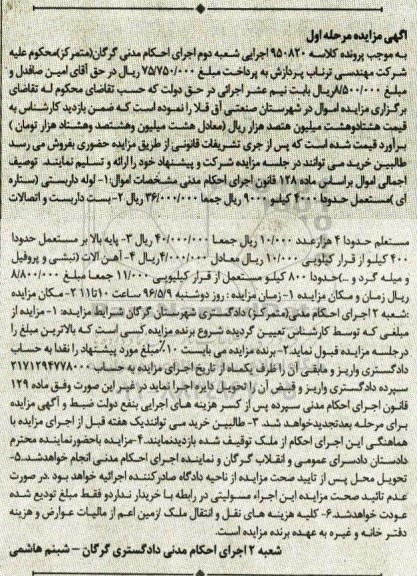 آگهی مزایده مرحله اول
به موجب پرونده کلاسه ۹۵۰۸۲۰ اجرایی شعبه دوم اجرای احکام مدنی گرگان(متمرکز)محکوم علیه
شرکت مهندسی ترناب پردازش به پرداخت مبلغ ۷۵/۷۵۰/۰۰۰ ریال در حق آقای امین صافدل و
مبلغ ۸/۵۰۰/۰۰۰ریال بابت نیم عشر اجرائی در حق دولت که حسب تقاضای محکوم له تقاضای
برگزاری مزایده اموال در شهرستان صنعتی آق قلا را نموده است که ضمن بازدید کارشناس به
قیمت هشتادوهشت میلیون هتصد هزار ریال (معادل هشت میلیون وهشتصد وهشتاد هزار تومان )
برآورد قیمت شده است که پس از جری تشریفات قانونی از طریق مزایده حضوری بفروش می رسد
طالبین خرید می توانند در جلسه مزایده شرکت و پیشنهاد خود را ارائه و تسلیم نمایند. توصیف
اجمالی اموال براساس ماده ۱۲۸ قانون اجرای احکام مدنی مشخصات اموال:۱- لوله داربستی (ستاره
ای)مستعمل حدودا ۴۰۰۰ کیلو ۹۰۰۰ ریال جمعا ۳۶/۰۰۰/۰۰۰ ریال ۲- بست داربست و اتصالات
مستعلم حدودا ۴ هزارعدد ۱۰/۰۰۰ ریال جمعا ۴۰/۰۰۰/۰۰۰ ریال ۳- پایه بالا بر مستعمل حدودا
۴۰۰ کیلو از قرار کیلویی ۱۰/۰۰۰ ریال معادل ۴/۰۰۰/۰۰۰ریال ۴- آهن آلات (نبشی و پروفیل
و میله گرد و ...)حدودا ۸۰۰ کیلو مستعمل از قرار کیلویی ۱۱/۰۰۰ جمعا مبلغ ۸/۸۰۰/۰۰۰
ریال زمان و مکان مزایده ۱- زمان مزایده : روز دوشنبه ۹۶/۵/۹ ساعت ۱۰تا۱۱ ۲- مکان مزایده
:شعبه ۲ اجرای احکام مدنی(متمرکز) دادگستری شهرستان گرگان شرایط مزایده: ۱- مزایده از
مبلغی که توسط کارشناس تعیین گردیده شروع برنده مزایده کسی است که بالاترین مبلغ را
درجلسه مزایده قبول نماید.۲- برنده مزایده می بایست ۱۰٪مبلغ مورد پیشنهاد را نقدا به حساب
دادگستری واریز و مابقی آن را ظرف یکماه از تاریخ اجرای مزایده به حساب ۲۱۷۱۲۹۴۷۷۸۰۰۰
سپرده دادگستری واریز و قبض آن را تحویل دایره اجرا نماید در غیر این صورت وفق ماده ۱۲۹
قانون اجرای احکام مدنی سپرده پس از کسر هزینه های اجرایی بنفع دولت ضبط و آگهی مزایده
برای مرحله بعدتجدیدخواهد شد. ۳- طالبین خرید می توانندیک هفته قبل از اجرای مزایده با
هماهنگی این اجرای احکام از ملک توقیف شده بازدیدنمایند.۴-مزایده باحضورنماینده محترم
دادستان دادسرای عمومی و انقلاب گرگان و نماینده اجرای احکام مدنی انجام خواهدشد.۵-
تحویل محل پس از تایید صحت مزایده از ناحیه دادگاه صادرکننده اجرائیه خواهد بود .در صورت
عدم تائید صحت مزایده این اجراء مسئولیتی در رابطه با خریدار نداردو فقط مبلغ تودیع شده
عودت خواهدشد.۶- کلیه هزینه های نقل و انتقال ملک ازمین اعم از مالیات عوارض و هزینه
دفتر خانه و غیره به عهده برنده مزایده است.
شعبه ۲ اجرای احکام مدنی دادگستری گرگان – شبنم هاشمی